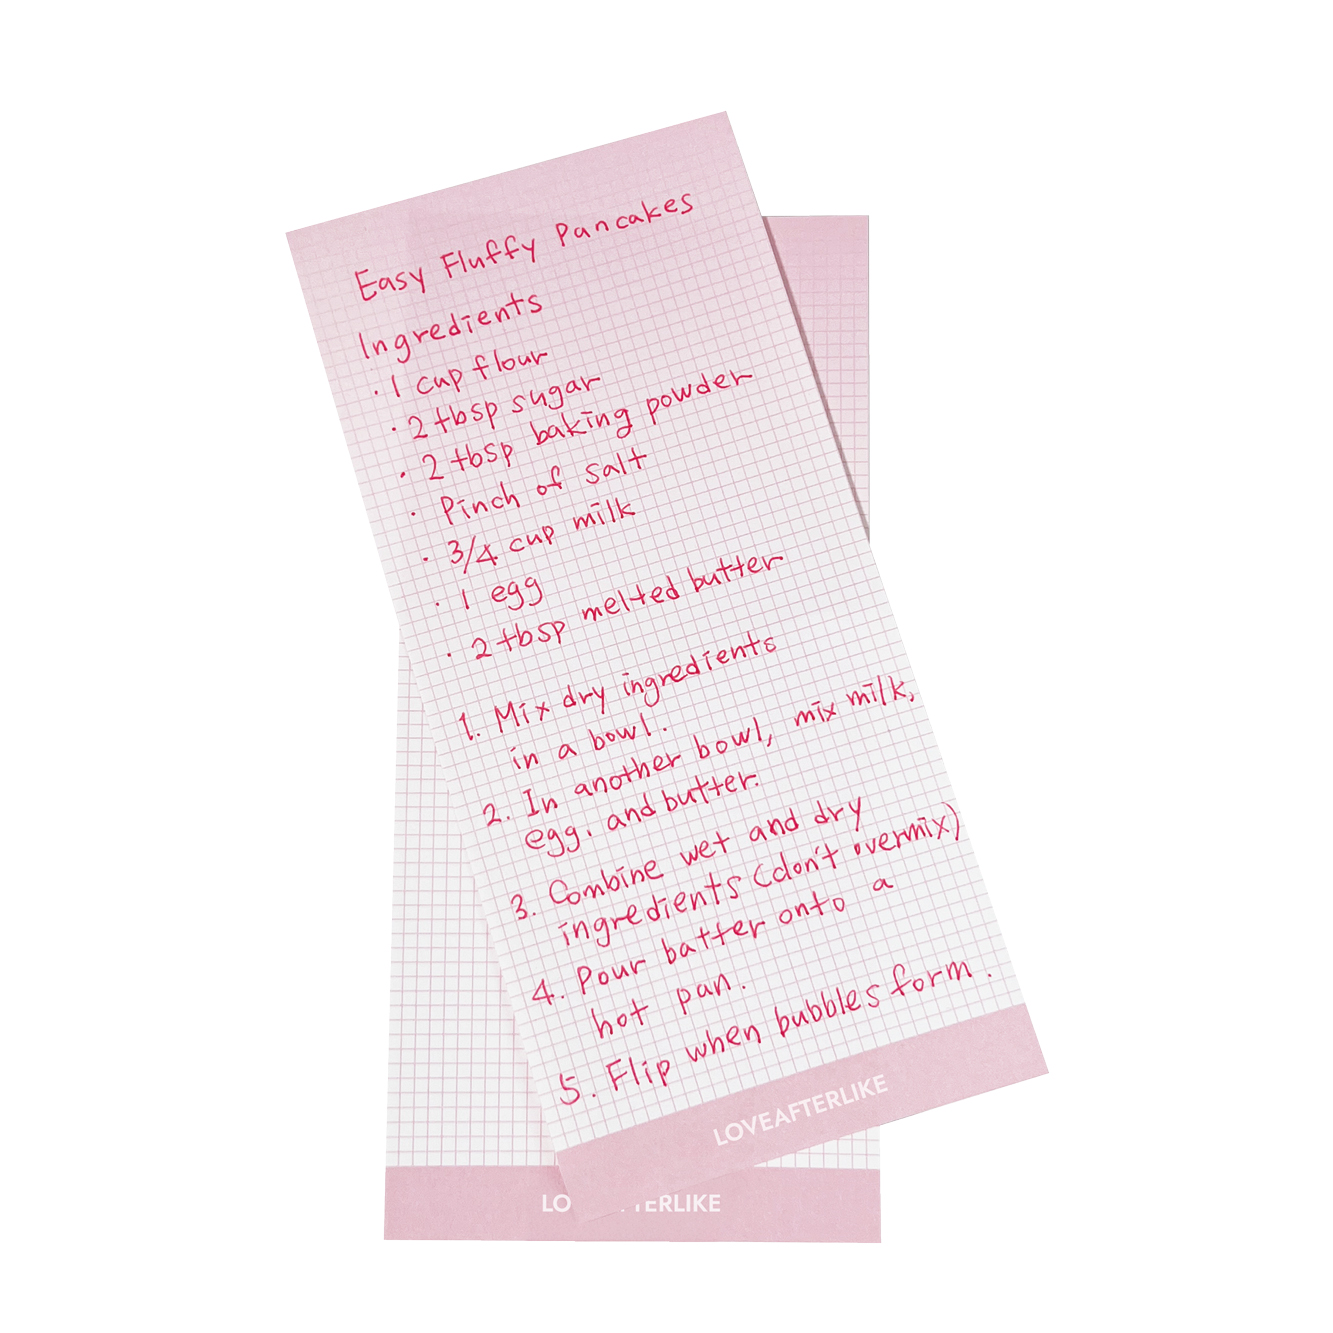 Easy Fluffy Pancakes
Ingredients
· 1 cup flour
· 2 tbsp sugar
· 2 tbsp baking powder
· Pinch of salt
· 3/4 cup milk
· 1 egg
· 2 tbsp melted butter
1. Mix dry ingredients
in a bowl.
2. In another bowl, mix milk,
egg. and butter.
3. Combine wet and dry
ingredients (don't overmix)
4. Pour batter onto a
hot pan.
5. Flip when bubbles form.
LOVEAFTERLIKE
LO TERLIKE